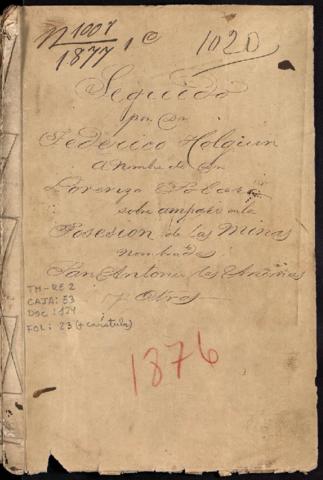 N 1007 1 C 1020
1877
Seguido
por Dn
Federico Holguin
a nombre de Dn
Lorenzo
sobre amparo en la
Posesion de las Minas
nombrads
San Antonio las Animas
y Otras
TM-RE 2
CAJA: 53
DOC: 174
FOL: 23 (+ carátula)
1876